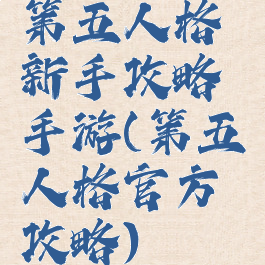 第五人格
新手攻略
手游(第五
人格官方
攻略)